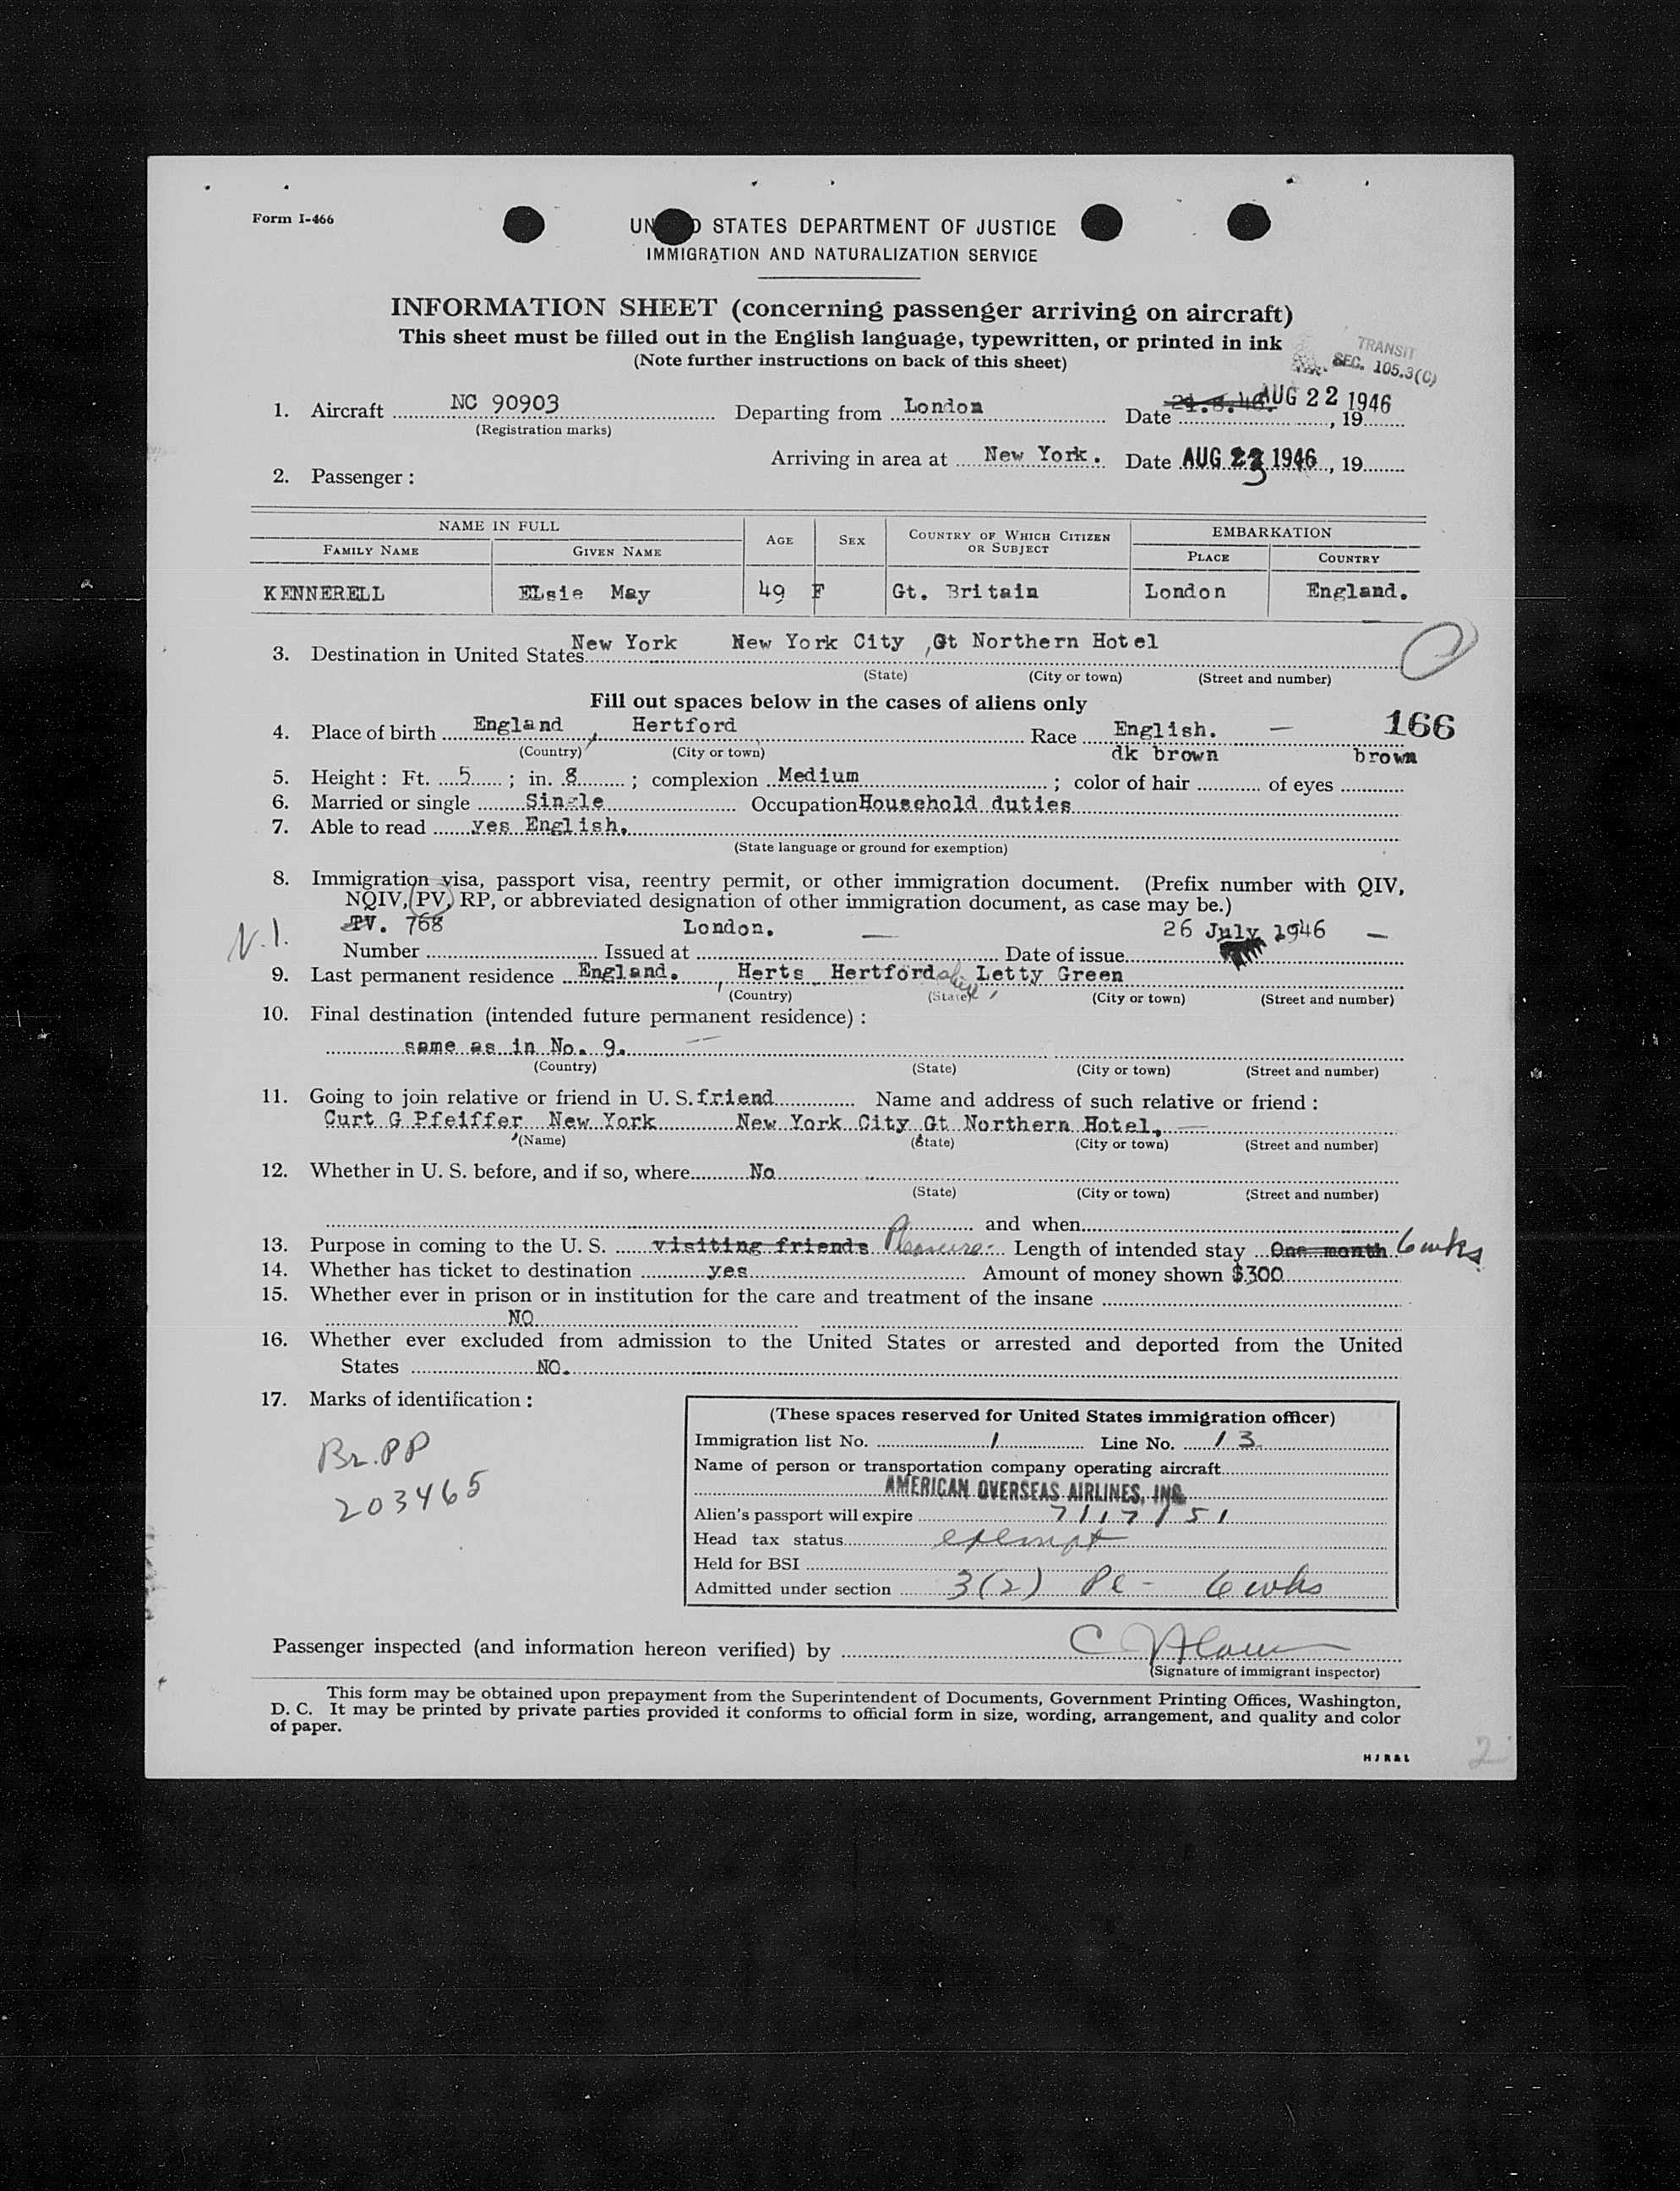 Form I-466
UN D STATES DEPARTMENT OF JUSTICE
IMMIGRATION AND NATURALIZATION SERVICE
INFORMATION SHEET (concerning passenger arriving on aircraft)
This sheet must be filled out in the English language, typewritten, or printed in ink
(Note further instructions on back of this sheet)
TRANSIT
SEC. 105.3(C)
1. Aircraft NC 90903 Departing from London Date 21.8.46. AUG 22 1946, 19
(Registration marks)
Arriving in area at New York. Date AUG 23 1946, 19
2. Passenger:
NAME IN FULL AGE SEX COUNTRY OF WHICH CITIZEN OR SUBJECT EMBARKATION
FAMILY NAME GIVEN NAME PLACE COUNTRY
KENNERELL ELsie May 49 F Gt. Britain London England.
3. Destination in United States New York New York City, Gt Northern Hotel
(State) (City or town) (Street and number)
Fill out spaces below in the cases of aliens only
166
4. Place of birth England, Hertford Race English. —
(Country) (City or town) dk brown brown
5. Height: Ft. 5; in. 8; complexion Medium; color of hair of eyes
6. Married or single Single Occupation Household duties
7. Able to read yes English.
(State language or ground for exemption)
8. Immigration visa, passport visa, reentry permit, or other immigration document. (Prefix number with QIV,
NQIV, PV, RP, or abbreviated designation of other immigration document, as case may be.)
N.I. PV. 768 London. — 26 July 1946 —
Number Issued at Date of issue
9. Last permanent residence England. Herts, Hertfordshire, Letty Green
(Country) (State) (City or town) (Street and number)
10. Final destination (intended future permanent residence):
same as in No. 9.
(Country) (State) (City or town) (Street and number)
11. Going to join relative or friend in U. S. friend Name and address of such relative or friend:
Curt G Pfeiffer, New York New York City Gt Northern Hotel, —
(Name) (State) (City or town) (Street and number)
12. Whether in U. S. before, and if so, where No
(State) (City or town) (Street and number)
and when
13. Purpose in coming to the U. S. visiting friends Pleasure - Length of intended stay One month 6 wks
14. Whether has ticket to destination yes Amount of money shown $300
15. Whether ever in prison or in institution for the care and treatment of the insane
NO
16. Whether ever excluded from admission to the United States or arrested and deported from the United
States NO.
17. Marks of identification:
Br. PP
203465
(These spaces reserved for United States immigration officer)
Immigration list No. 1 Line No. 13
Name of person or transportation company operating aircraft
AMERICAN OVERSEAS AIRLINES, INC.
Alien's passport will expire 7/17/51
Head tax status exempt
Held for BSI
Admitted under section 3(2) Pl - 6 wks
Passenger inspected (and information hereon verified) by
(Signature of immigrant inspector)
This form may be obtained upon prepayment from the Superintendent of Documents, Government Printing Offices, Washington,
D. C. It may be printed by private parties provided it conforms to official form in size, wording, arrangement, and quality and color
of paper.
HJR&L
2